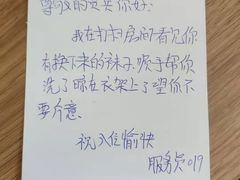 尊敬的贵宾你好:
我在打扫房间看见你
有换下来的袜子,顺手帮你
洗了晾在衣架上了望你不
要介意
祝入住愉快
服务员019